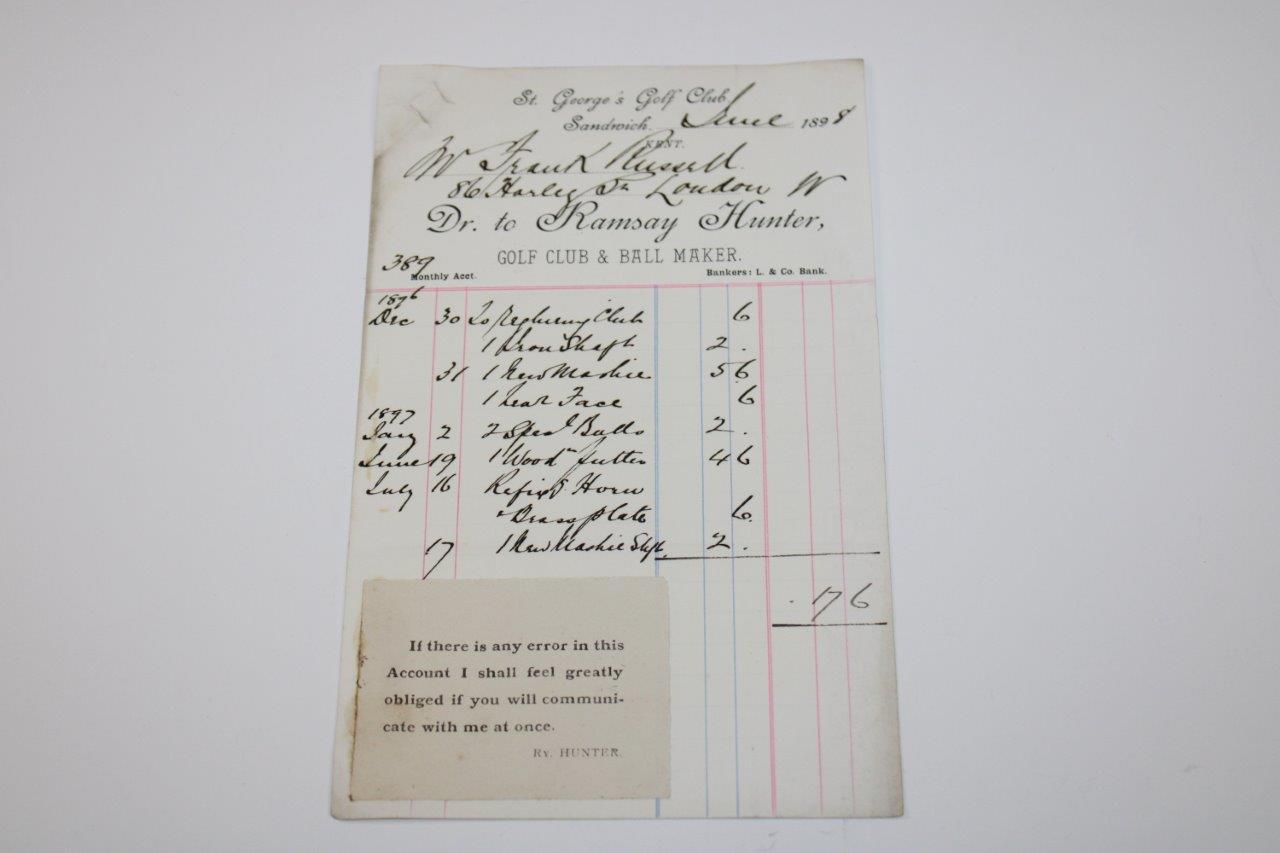 St. George's Golf Club
Sandwich. June 1898
KENT.
Mr Frank Russell
86 Harley St. London W
Dr. to Ramsay Hunter,
GOLF CLUB & BALL MAKER.
389
Monthly Acct. Bankers: L. & Co. Bank.
1896
Dec 30 To Regluing Club 6
1 Iron Shaft 2 .
31 1 New Mashie 5 6
1 Leat Face 6
1897
Jany 2 2 Specl Balls 2 .
June 19 1 Wood Putter 4 6
July 16 Refixg Horn
& Brass Plate 6
17 1 New Mashie Shft. 2 .
. 17 6
If there is any error in this
Account I shall feel greatly
obliged if you will communi-
cate with me at once.
RY. HUNTER.